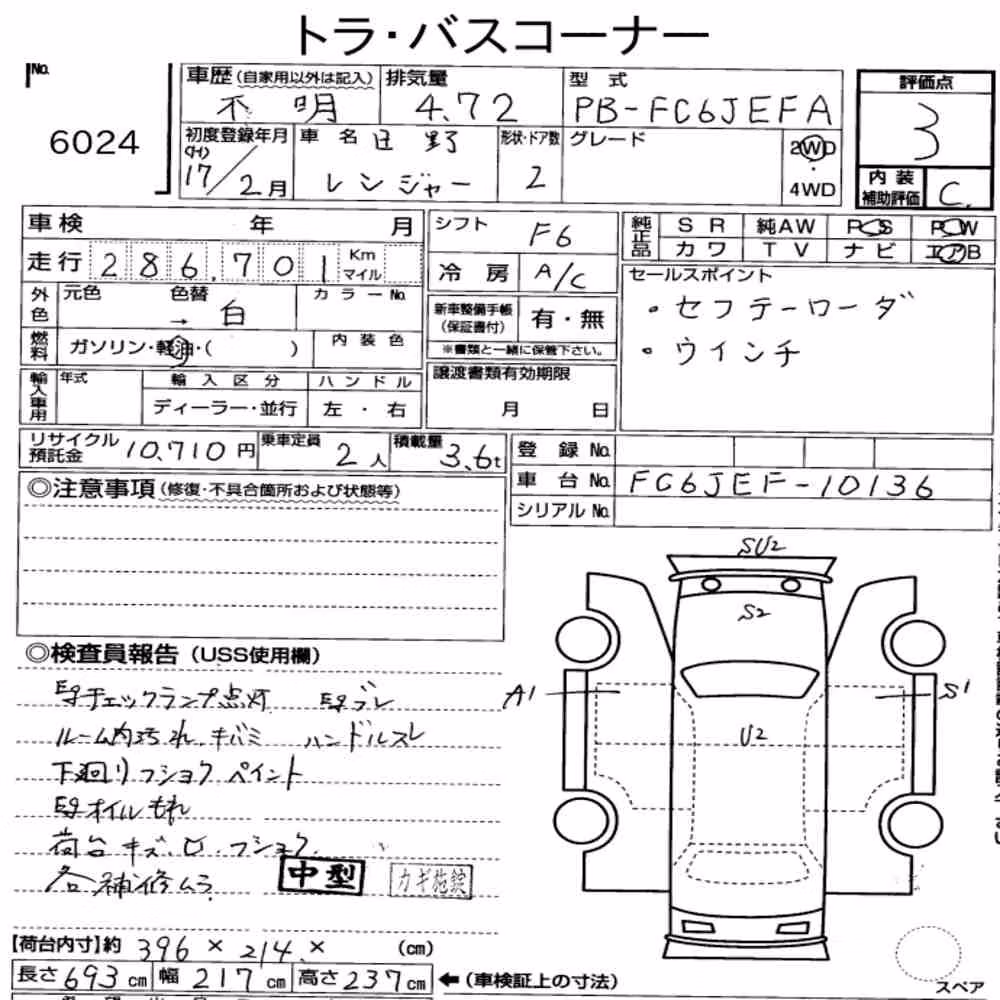 トラ・バスコーナー
No.
6024
車歴 (自家用以外は記入) 不明
排気量 4.72
型式 PB-FC6JEFA
評価点 3
初度登録年月 (H) 17/2月
車名 日野 レンジャー
形状・ドア数 2
グレード
2WD ・ 4WD
内装補助評価 C.
車検 年 月
シフト F6
純正品 SR 純AW PS PW
カワ TV ナビ エアB
走行 286,701 Km マイル
冷房 A/C
セールスポイント
・セフテーローダ
・ウインチ
外色 元色 色替 → 白 カラーNo.
新車整備手帳 (保証書付) 有・無
※書類と一緒に保管下さい。
燃料 ガソリン・軽油・( ) 内装色
輸入車用 年式 輸入区分 ハンドル
ディーラー・並行 左・右
譲渡書類有効期限 月 日
リサイクル預託金 10,710円 乗車定員 2人 積載量 3.6t
登録No.
車台No. FC6JEF-10136
シリアルNo.
◎注意事項 (修復・不具合箇所および状態等)
◎検査員報告 (USS使用欄)
チェックランプ点灯 ブレ
ルーム内汚れ、キバミ ハンドルスレ
下廻りフショク ペイント
オイルもれ
荷台キズ、凹、フショク
各補修ムラ
中型
カギ施錠
SU2
S2
A1
S1
U2
【荷台内寸】約 396 × 214 × (cm)
長さ693cm 幅217cm 高さ237cm ←(車検証上の寸法)
スペア